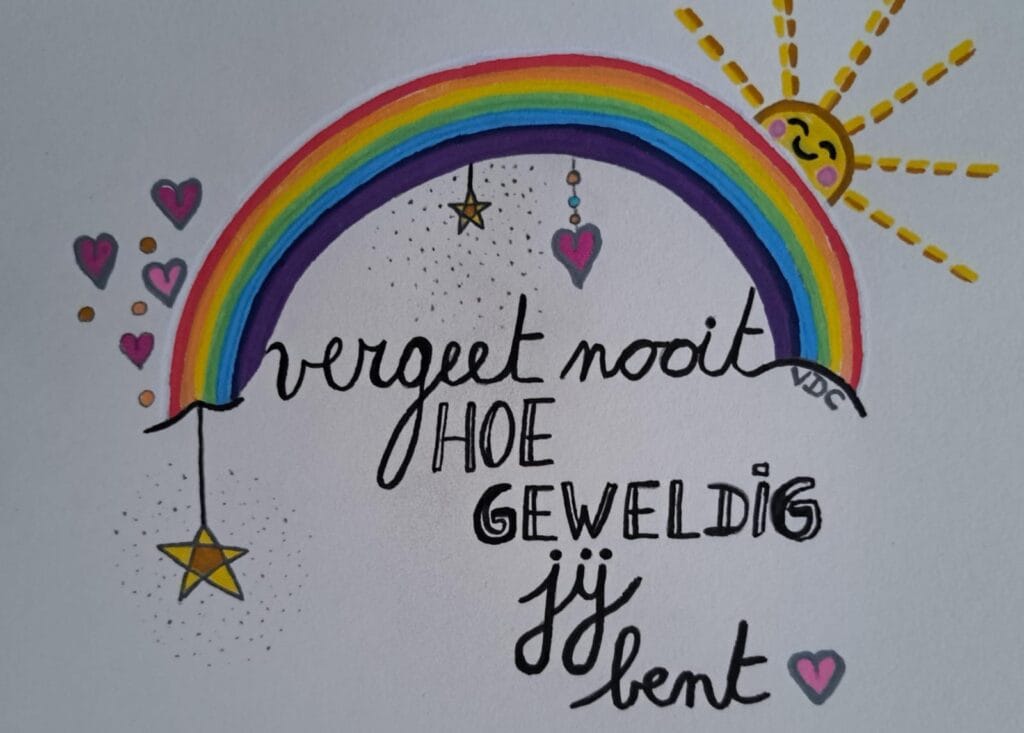 vergeet nooit
VDC
HOE
GEWELDiG
jij
bent